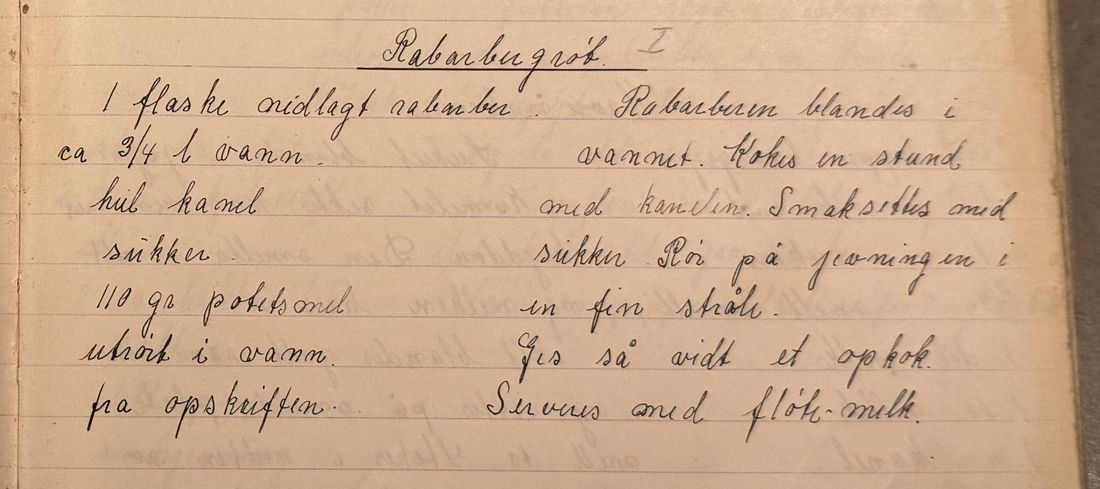 Rabarbergrøt. I
1 flaske nidlagt rabarber.
ca 3/4 l vann.
hel kanel
sukker.
110 gr potetsmel
utrørt i vann.
fra opskriften.
Rabarberen blandes i
vannet. Kokes en stund
med kanelen. Smaksettes med
sukker. Rør på jevningen i
en fin stråle.
Ges så vidt et opkok.
Serveres med fløte-melk.